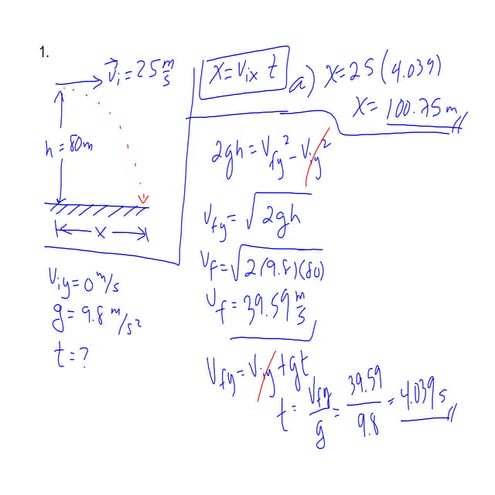 1.
v⃗i = 25 m/s
h = 80m
x
Viy = 0 m/s
g = 9.8 m/s²
t = ?
x = Vix t
a) x = 25 (4.039)
x = 100.75 m
2gh = Vfy² - Viy²
Vfy = √2gh
Vf = √2(9.8)(80)
Vf = 39.59 m/s
Vfy = Viy + gt
t = Vfy/g = 39.59/9.8 = 4.039 s